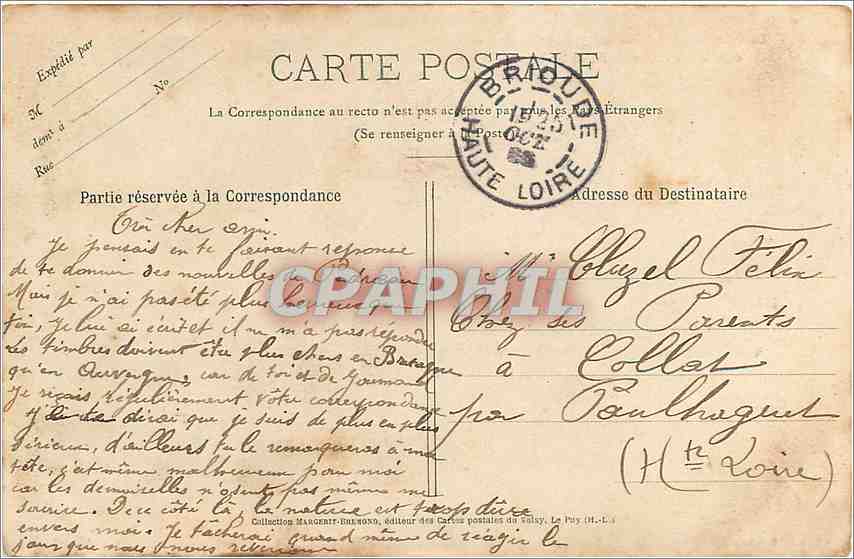 Expédié par
M
demt à
No
Rue
CARTE POSTALE
La Correspondance au recto n'est pas acceptée par tous les Pays Étrangers
(Se renseigner à la Poste)
BRIOUDE
HAUTE LOIRE
OCT
Partie réservée à la Correspondance
Adresse du Destinataire
Très cher ami.
Je pensais en te faisant reponse
de te donner des nouvelles de
Mais je n'ai pas été plus heureux que
toi, je lui ai écrit et il ne m'a pas répondu
Les timbres doivent être plus chers en Bretagne
qu'en Auvergne, car de toi et de
Je reçois régulièrement votre correspondance
dirai que je suis de plus en plus
sérieux, d'ailleurs tu le remarqueras à ma
tête, c'est même malheureux pour moi
car les demoiselles n'osent pas même me
sourire. De ce côté là, la nature est trop dure
envers moi. Je tâcherai quand même de réagir le
jour que nous nous reverrons
Mr Cluzel Félix
Chez ses Parents
à Collat
par Paulhaguet
(Hte Loire)
CPAPHIL
Collection MARGERIT-BREMOND, éditeur des Cartes postales du Velay, Le Puy (H.-L.)